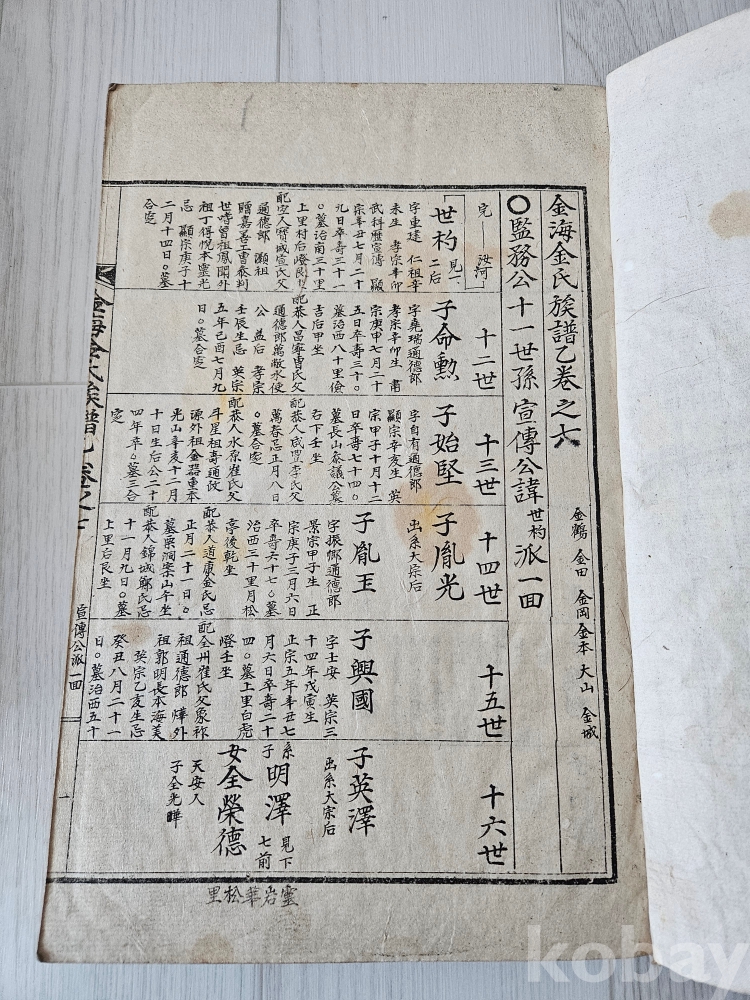 金海金氏族譜乙卷之六
金鶴 金田 金岡 金本 大山 金城
〇監務公十一世孫宣傳公諱世杓派一回
完 汝河
世杓 見一 二后
字重建 仁祖辛
未生 孝宗辛卯
武科歷宣傳 顯
宗辛丑七月二十
九日卒壽三十一
〇墓治南三十里
上里村后嶝艮坐
配宜人寶城宣氏父
通德郎 灝祖
贈嘉善工曹叅判
世嗜曾祖鳳聞外
祖丁得悅本靈光
忌 顯宗庚子十
二月十四日〇墓
合窆
十二世
子命勲
字堯瑞通德郎
孝宗辛卯生 肅
宗庚申七月二十
五日卒壽三十〇
墓治西八十里儉
吉后甲坐
配恭人昌寧曺氏父
通德郎萬敵水使
公 益后 孝宗
壬辰生忌 英宗
五年己酉七月九
日〇墓合窆
十三世
子始堅
字自有通德郎
顯宗辛亥生 英
宗甲子十月十二
日卒壽七十四〇
墓長山叅議公墓
右下壬坐
配恭人咸豊李氏父
萬春忌正月八日
〇墓合窆
配恭人水原崔氏父
斗星祖壽通政
源外祖金器重本
光山辛亥十二月
十日生后公二十
四年卒〇墓三合
窆
十四世
子胤光
出系大宗后
子胤王
字振卿通德郎
景宗甲子生 正
宗庚子三月六日
卒壽六十七〇墓
治西三十里月松
亭後乾坐
配恭人道康金氏忌
正月二十一日〇
墓栗洞案山午坐
配恭人錦城鄭氏忌
十一月九日〇墓
上里右艮坐
十五世
子興國
字士安 英宗三
十四年戊寅生
正宗五年辛丑七
月六日卒壽二十
四〇墓上里白虎
嶝壬坐
配全州崔氏父象祚
祖通德郎 燁外
祖郭明長本海美
英宗乙亥生忌
癸丑八月二十一
日〇墓治西五十
十六世
子英澤
出系大宗后
系子明澤 見下七前
女全榮德
天安人
子全光曄
金海金氏族譜乙卷之六
宣傳公派一回
一
靈岩華松里
kobay